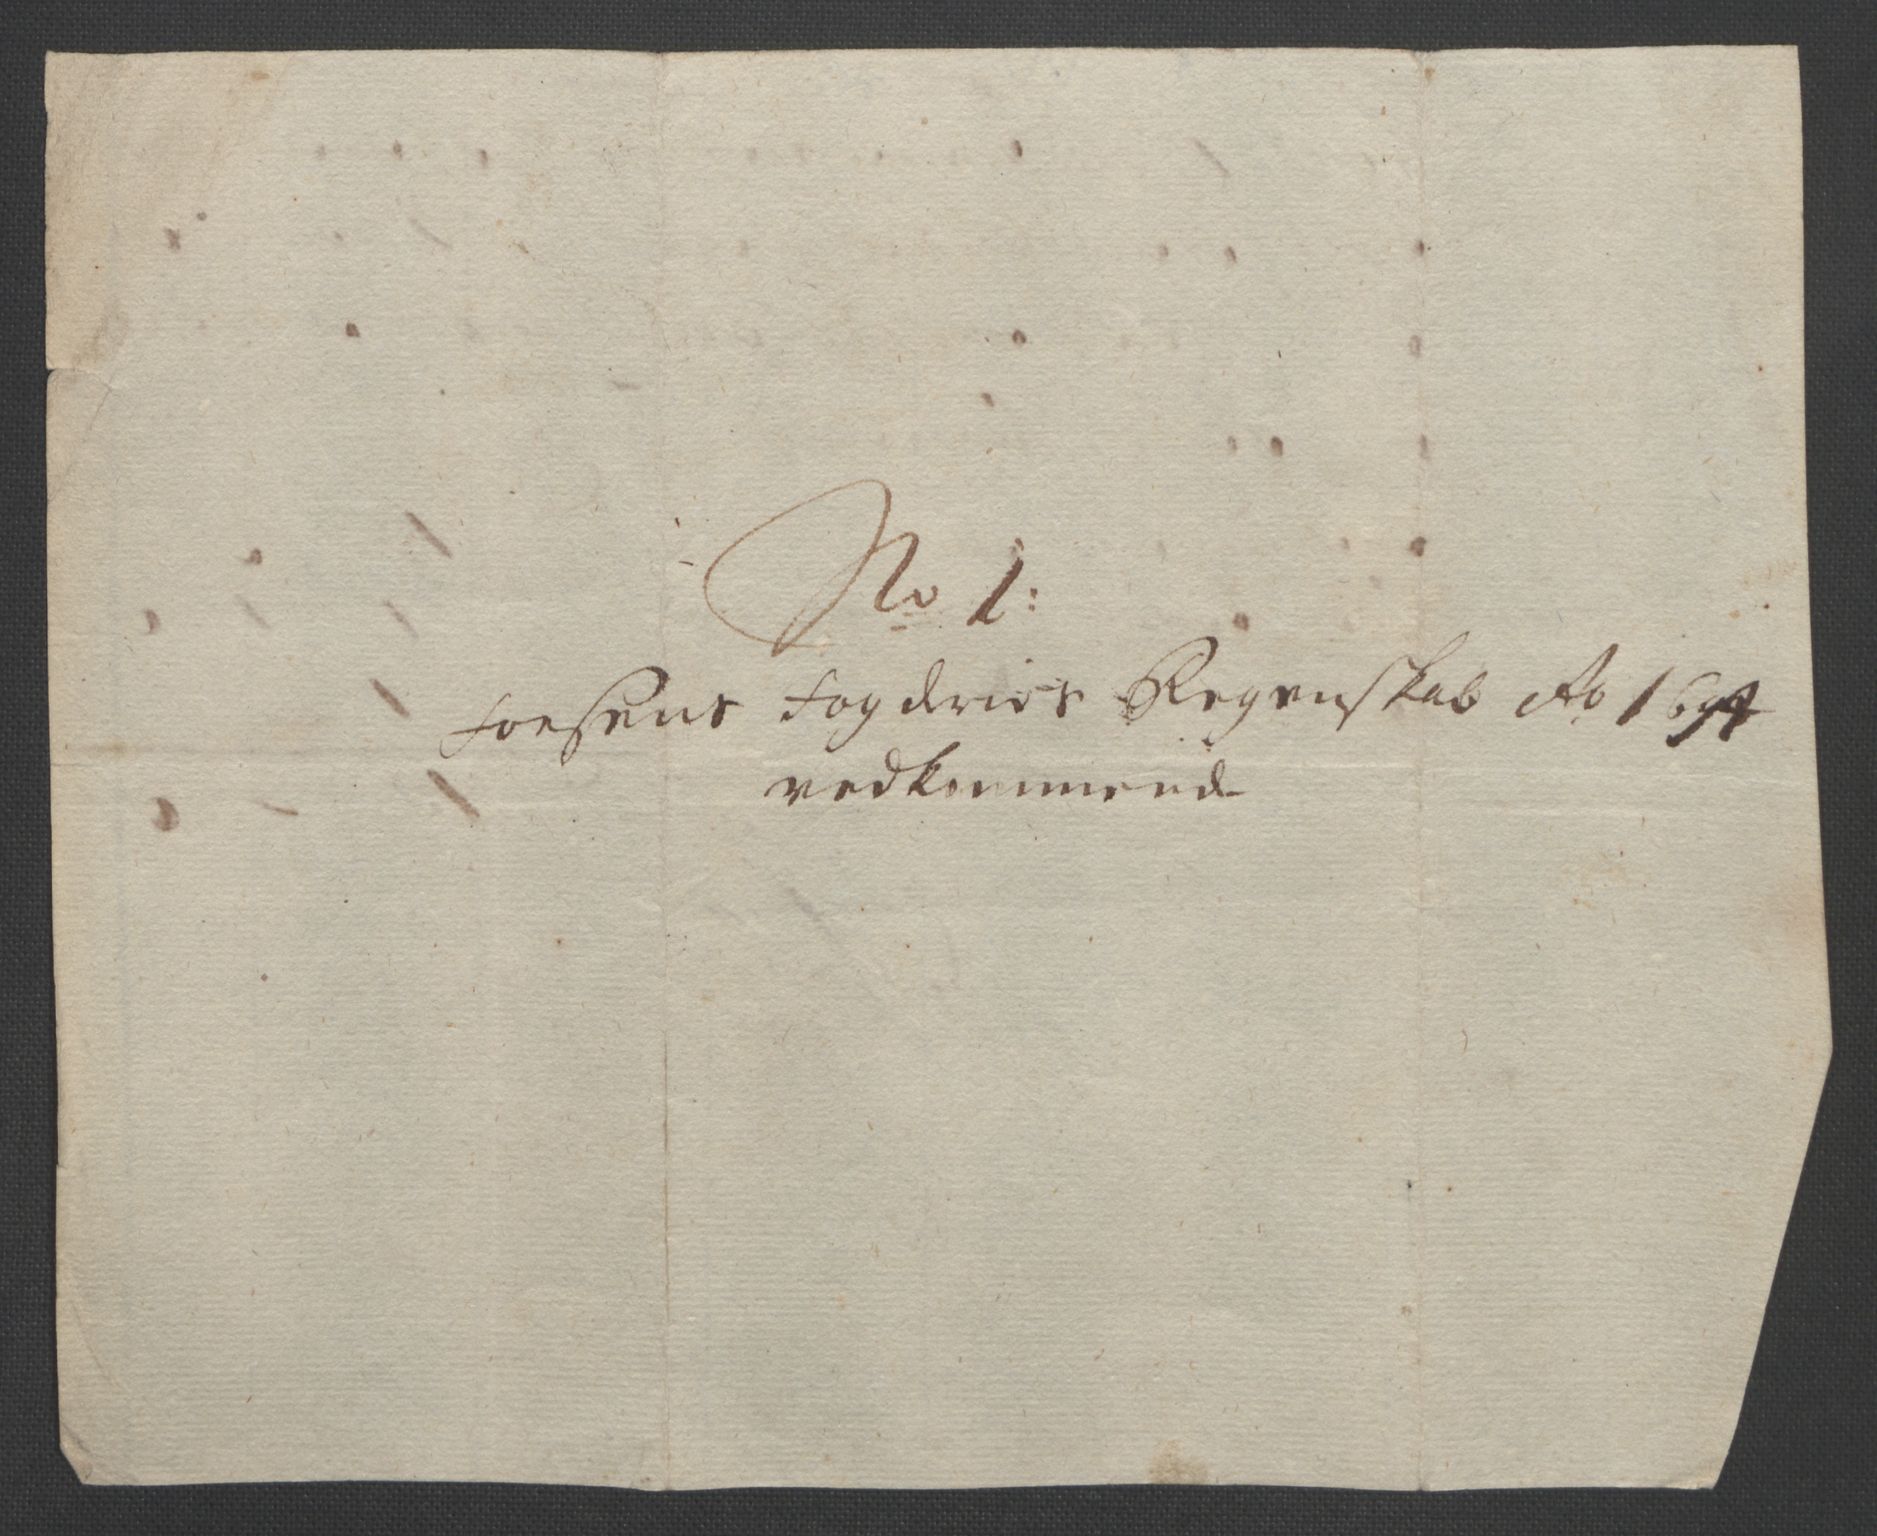 No 1:
Foesens Fogdries Regenskab Ao 1694
vedkommend